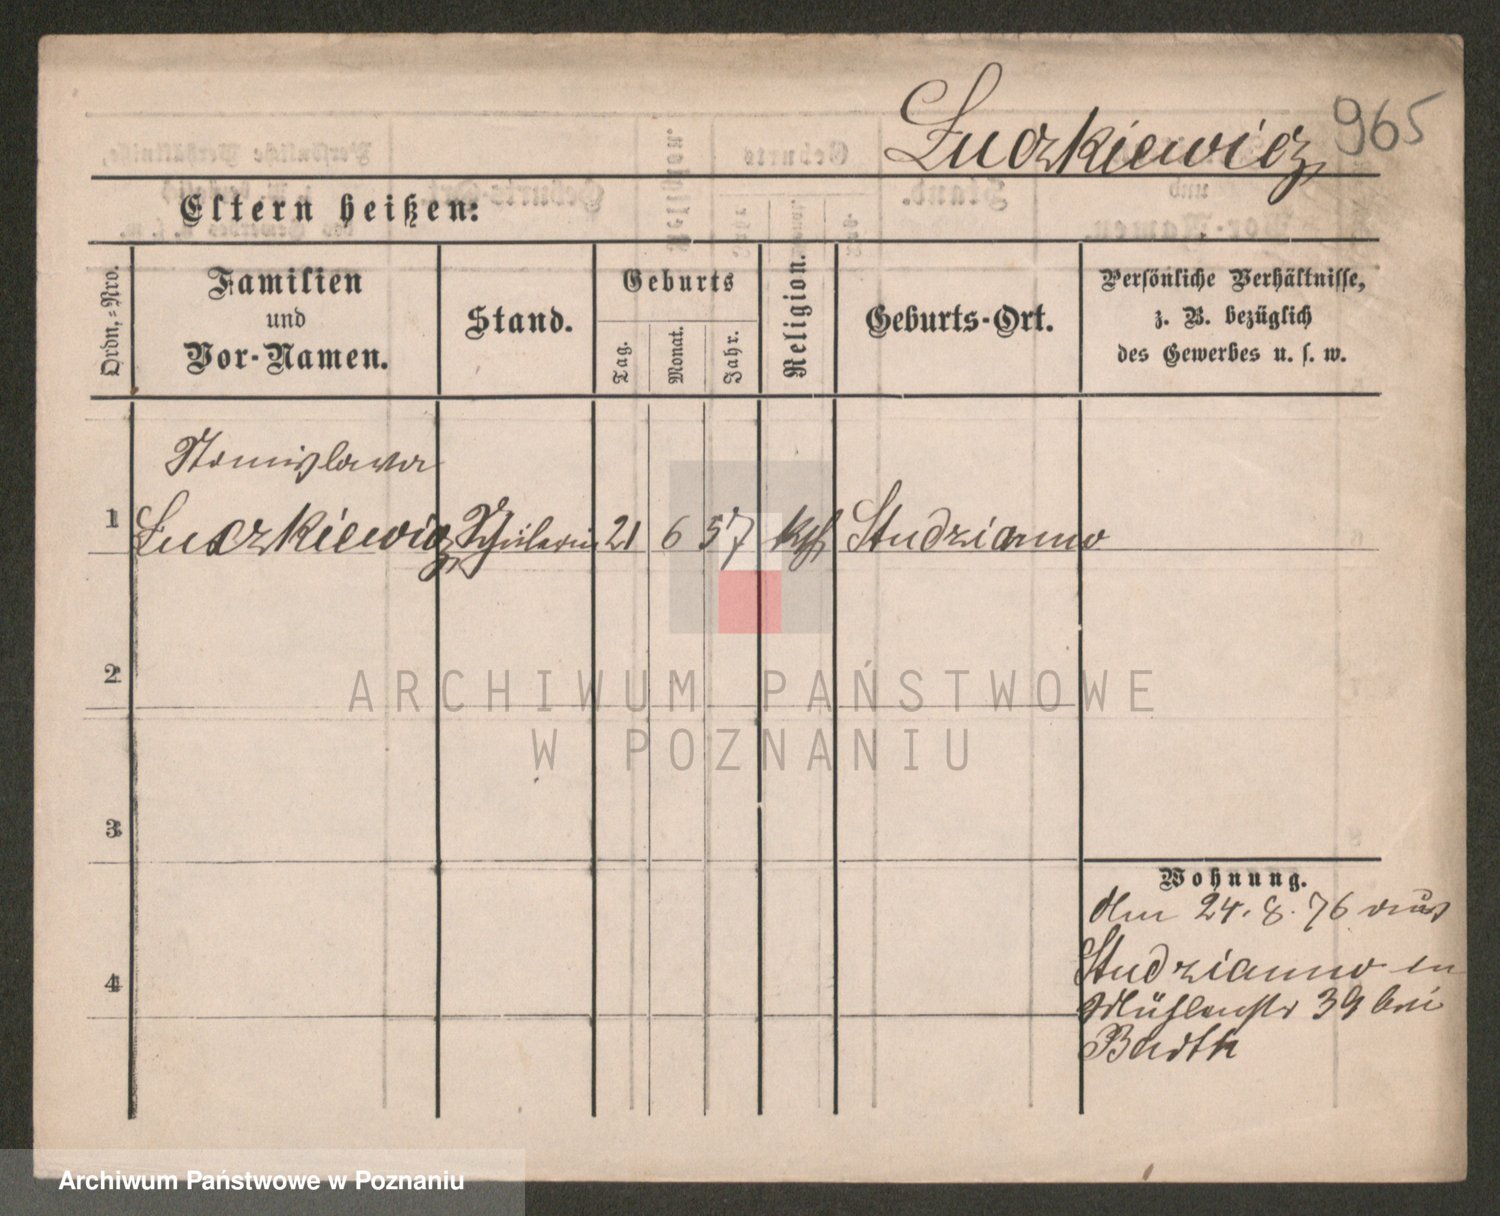 Łuczkiewicz 965
Eltern heißen:
Ordn.-Nro.
Familien
und
Vor-Namen.
Stand.
Geburts
Tag.
Monat.
Jahr.
Religion.
Geburts-Ort.
Persönliche Verhältnisse,
z. B. bezüglich
des Gewerbes u. s. w.
Stanislawa
1 Łuczkiewicz Schülerin 21 6 57 kth Studzianno
2
ARCHIWUM PAŃSTWOWE
W POZNANIU
3
Wohnung.
Am 24.8.76 aus
4 Studzianno in
Mühlenstr 39 bei
Barth
Archiwum Państwowe w Poznaniu